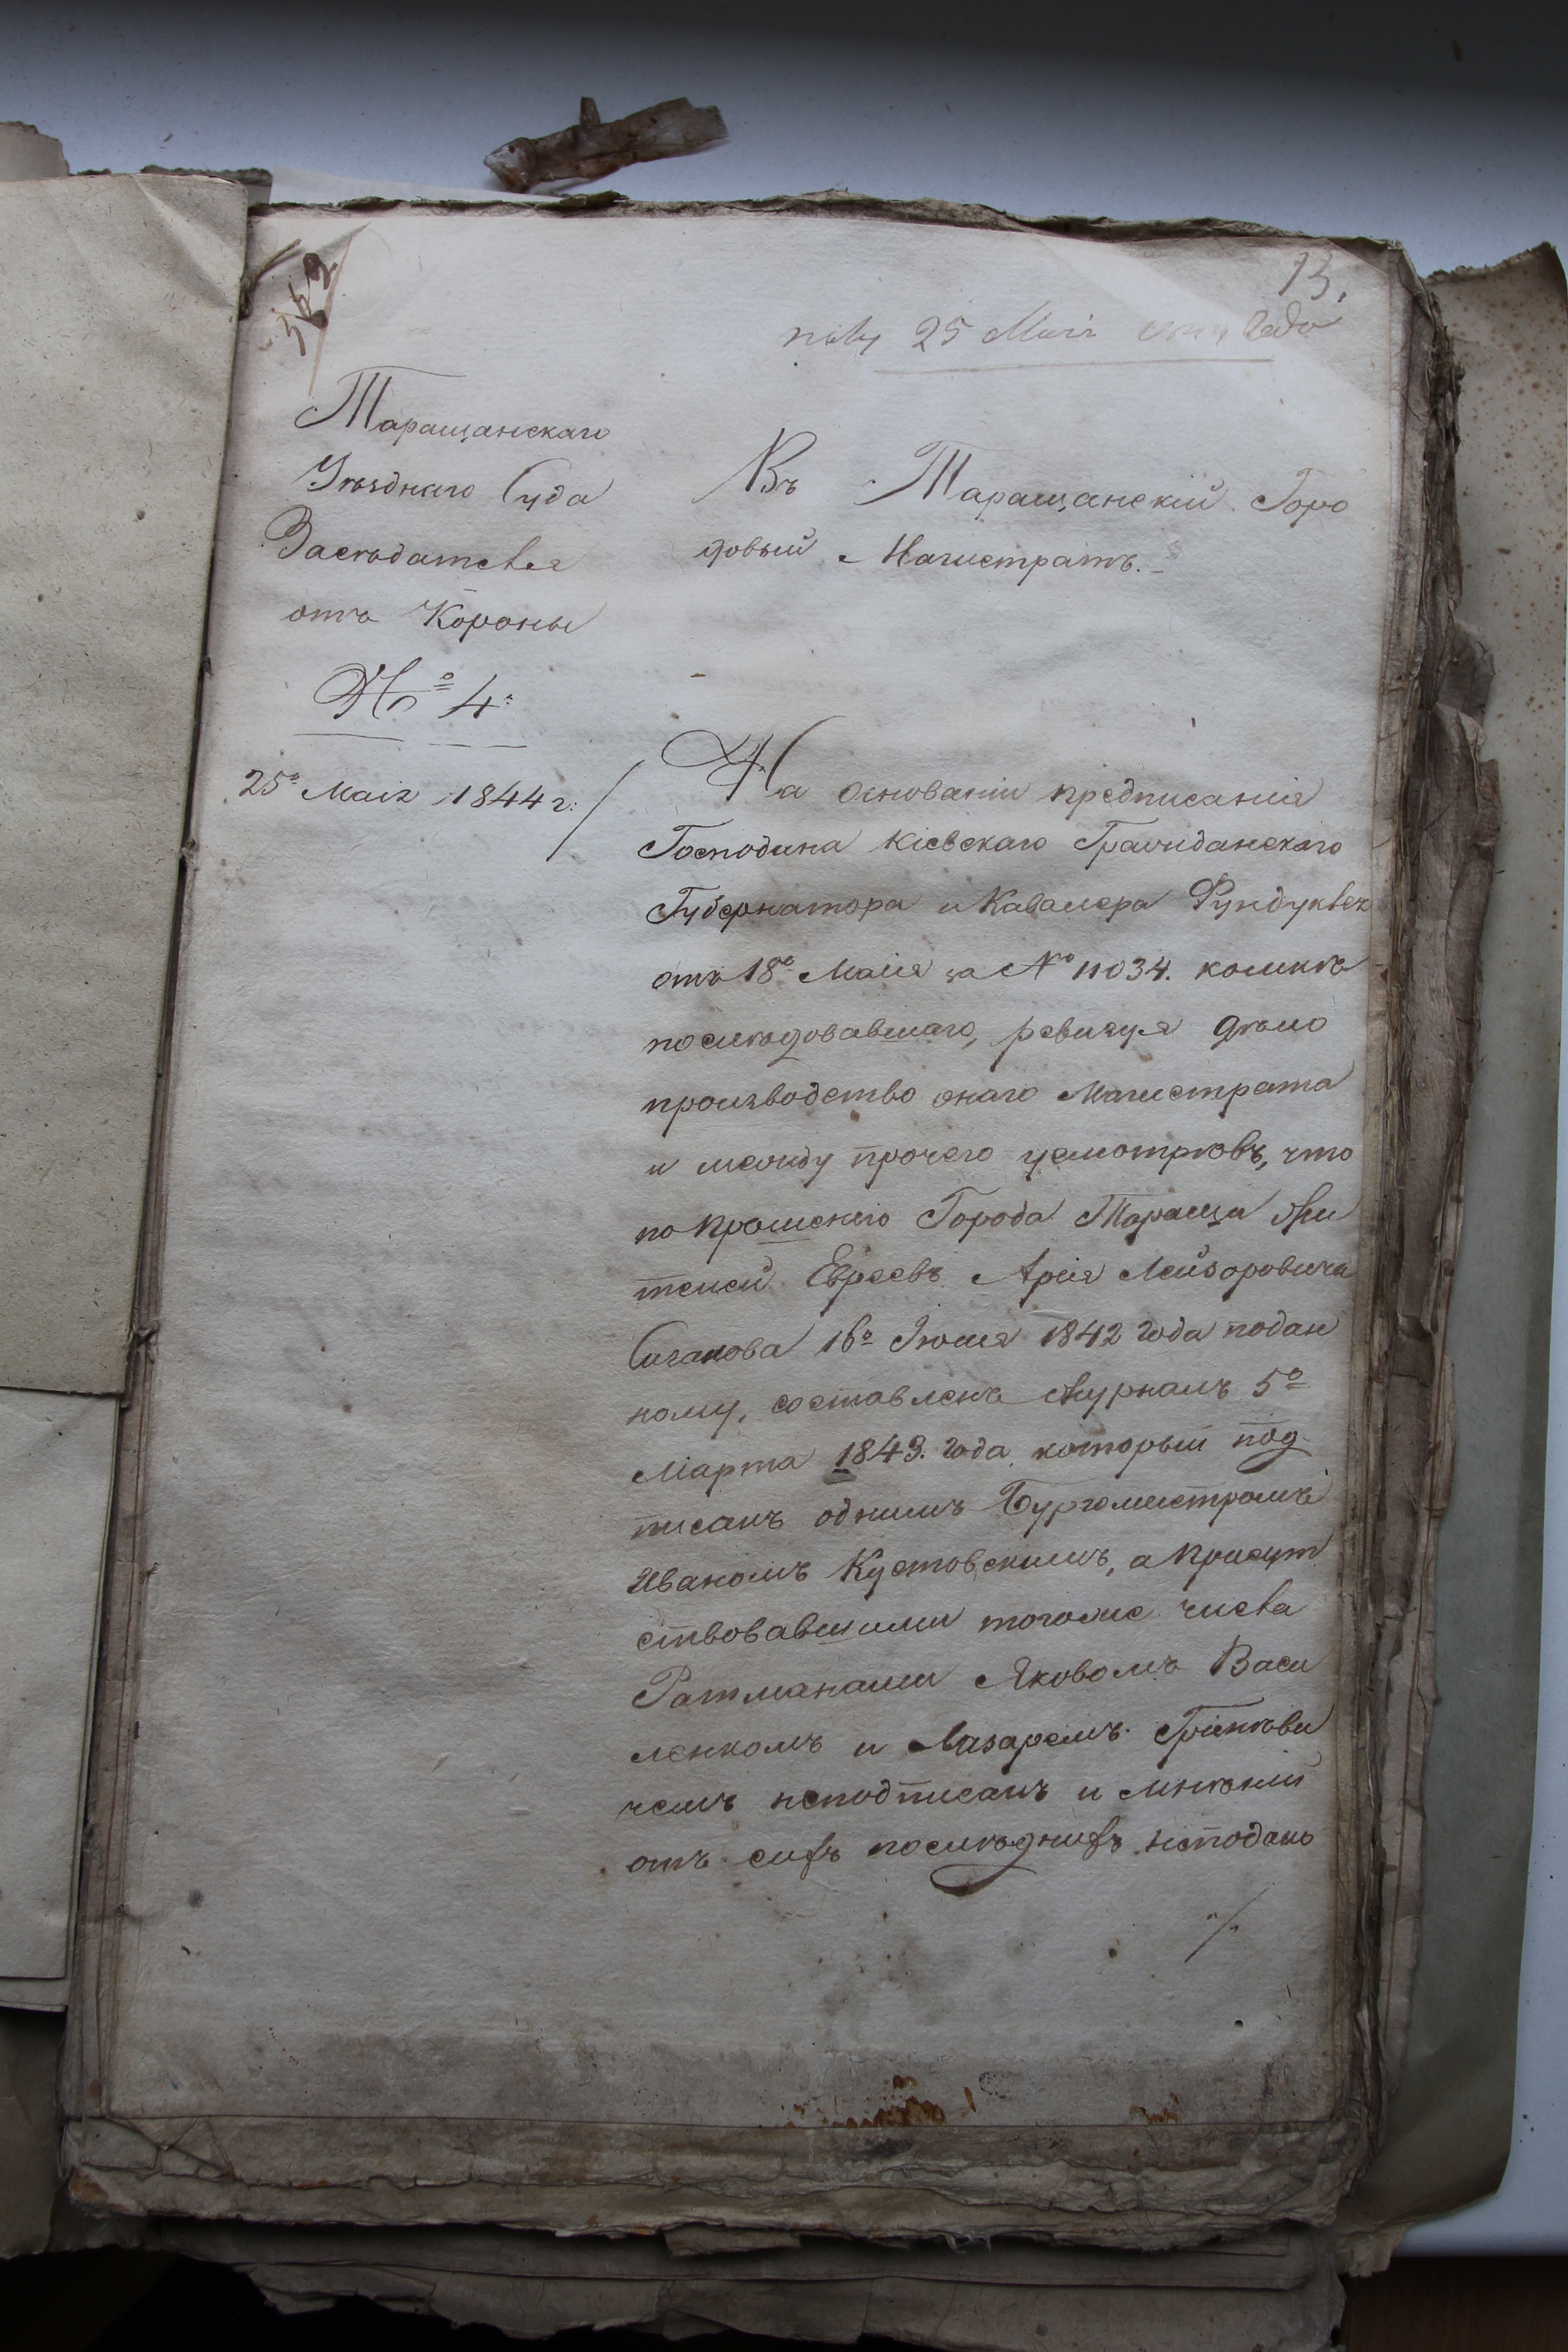 13.
25 Маія года
Таращанскаго
Уѣзднаго Суда
Засѣдателя
отъ Короны
№ 4.
25º Маія 1844 г:
Въ Таращанскій Горо
довый Магистратъ.
На основаніи предписанія
Господина Кіевскаго Гражданскаго
Губернатора и Кавалера Фундуклея
отъ 18º Маія за № 11034. комнѣ
послѣдовавшаго, ревизуя дѣло
производство онаго Магистрата
и между прочего усмотрѣвъ, что
по прошенію Города Тараща жи
телей Евреевъ Арія Лейзоровича
16º 1842 года подан
ному, составленъ журналъ 5º
Марта 1843. года который под
писанъ однимъ Бургомистромъ
Иваномъ Кустовскимъ, а присут
ствовавшими тогоже числа
Ратманами Яковомъ Васи
ленкомъ и Лазаремъ
чемъ неподписанъ и мнѣній
отъ сихъ послѣднихъ неподано